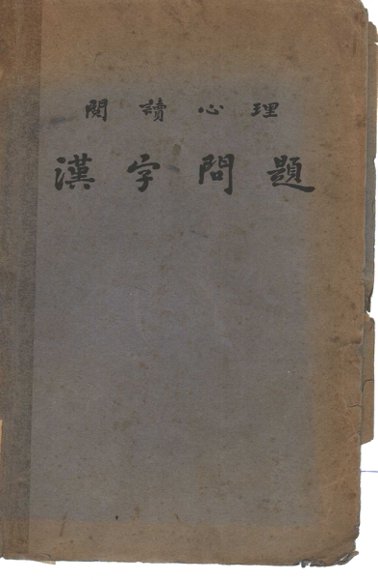 閱讀心理
漢字問題